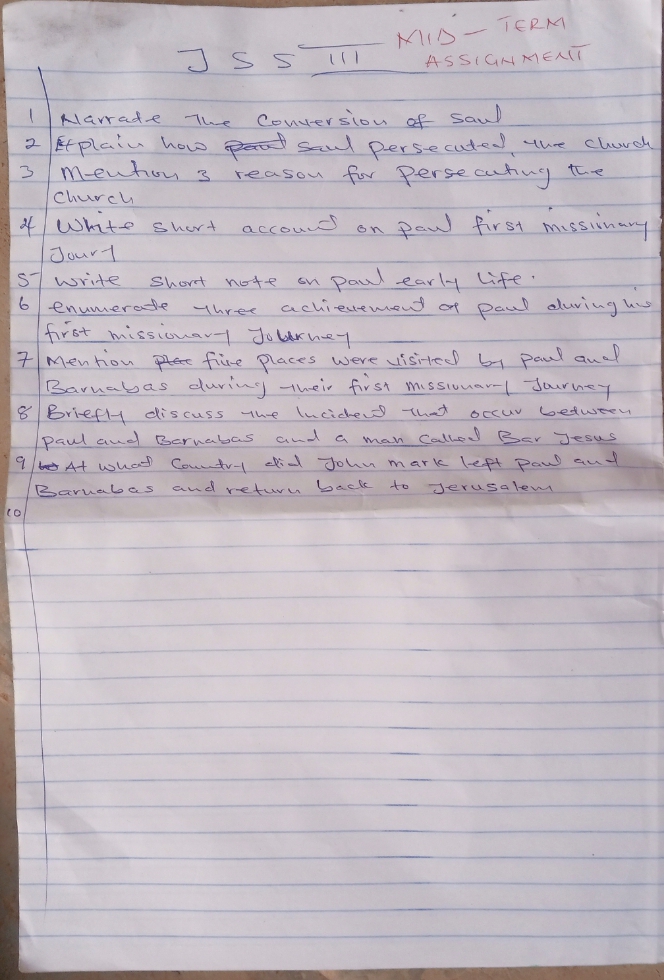 MID-TERM
JSS III ASSIGNMENT
1 Narrate The Conversion of Saul
2 Explain how Saul persecuted the church
3 Mention 3 reason for persecuting the
church
4 Write short account on paul first missionary
Joury
5 Write short note on paul early life.
6 enumerate three achievement of paul during his
first missionary Journey
7 Mention five places were visited by paul and
Barnabas during their first missionary Journey
8 Briefly discuss the Incident that occur between
paul and Barnabas and a man called Bar Jesus
9 At what Country did John mark left paul and
Barnabas and return back to Jerusalem
10